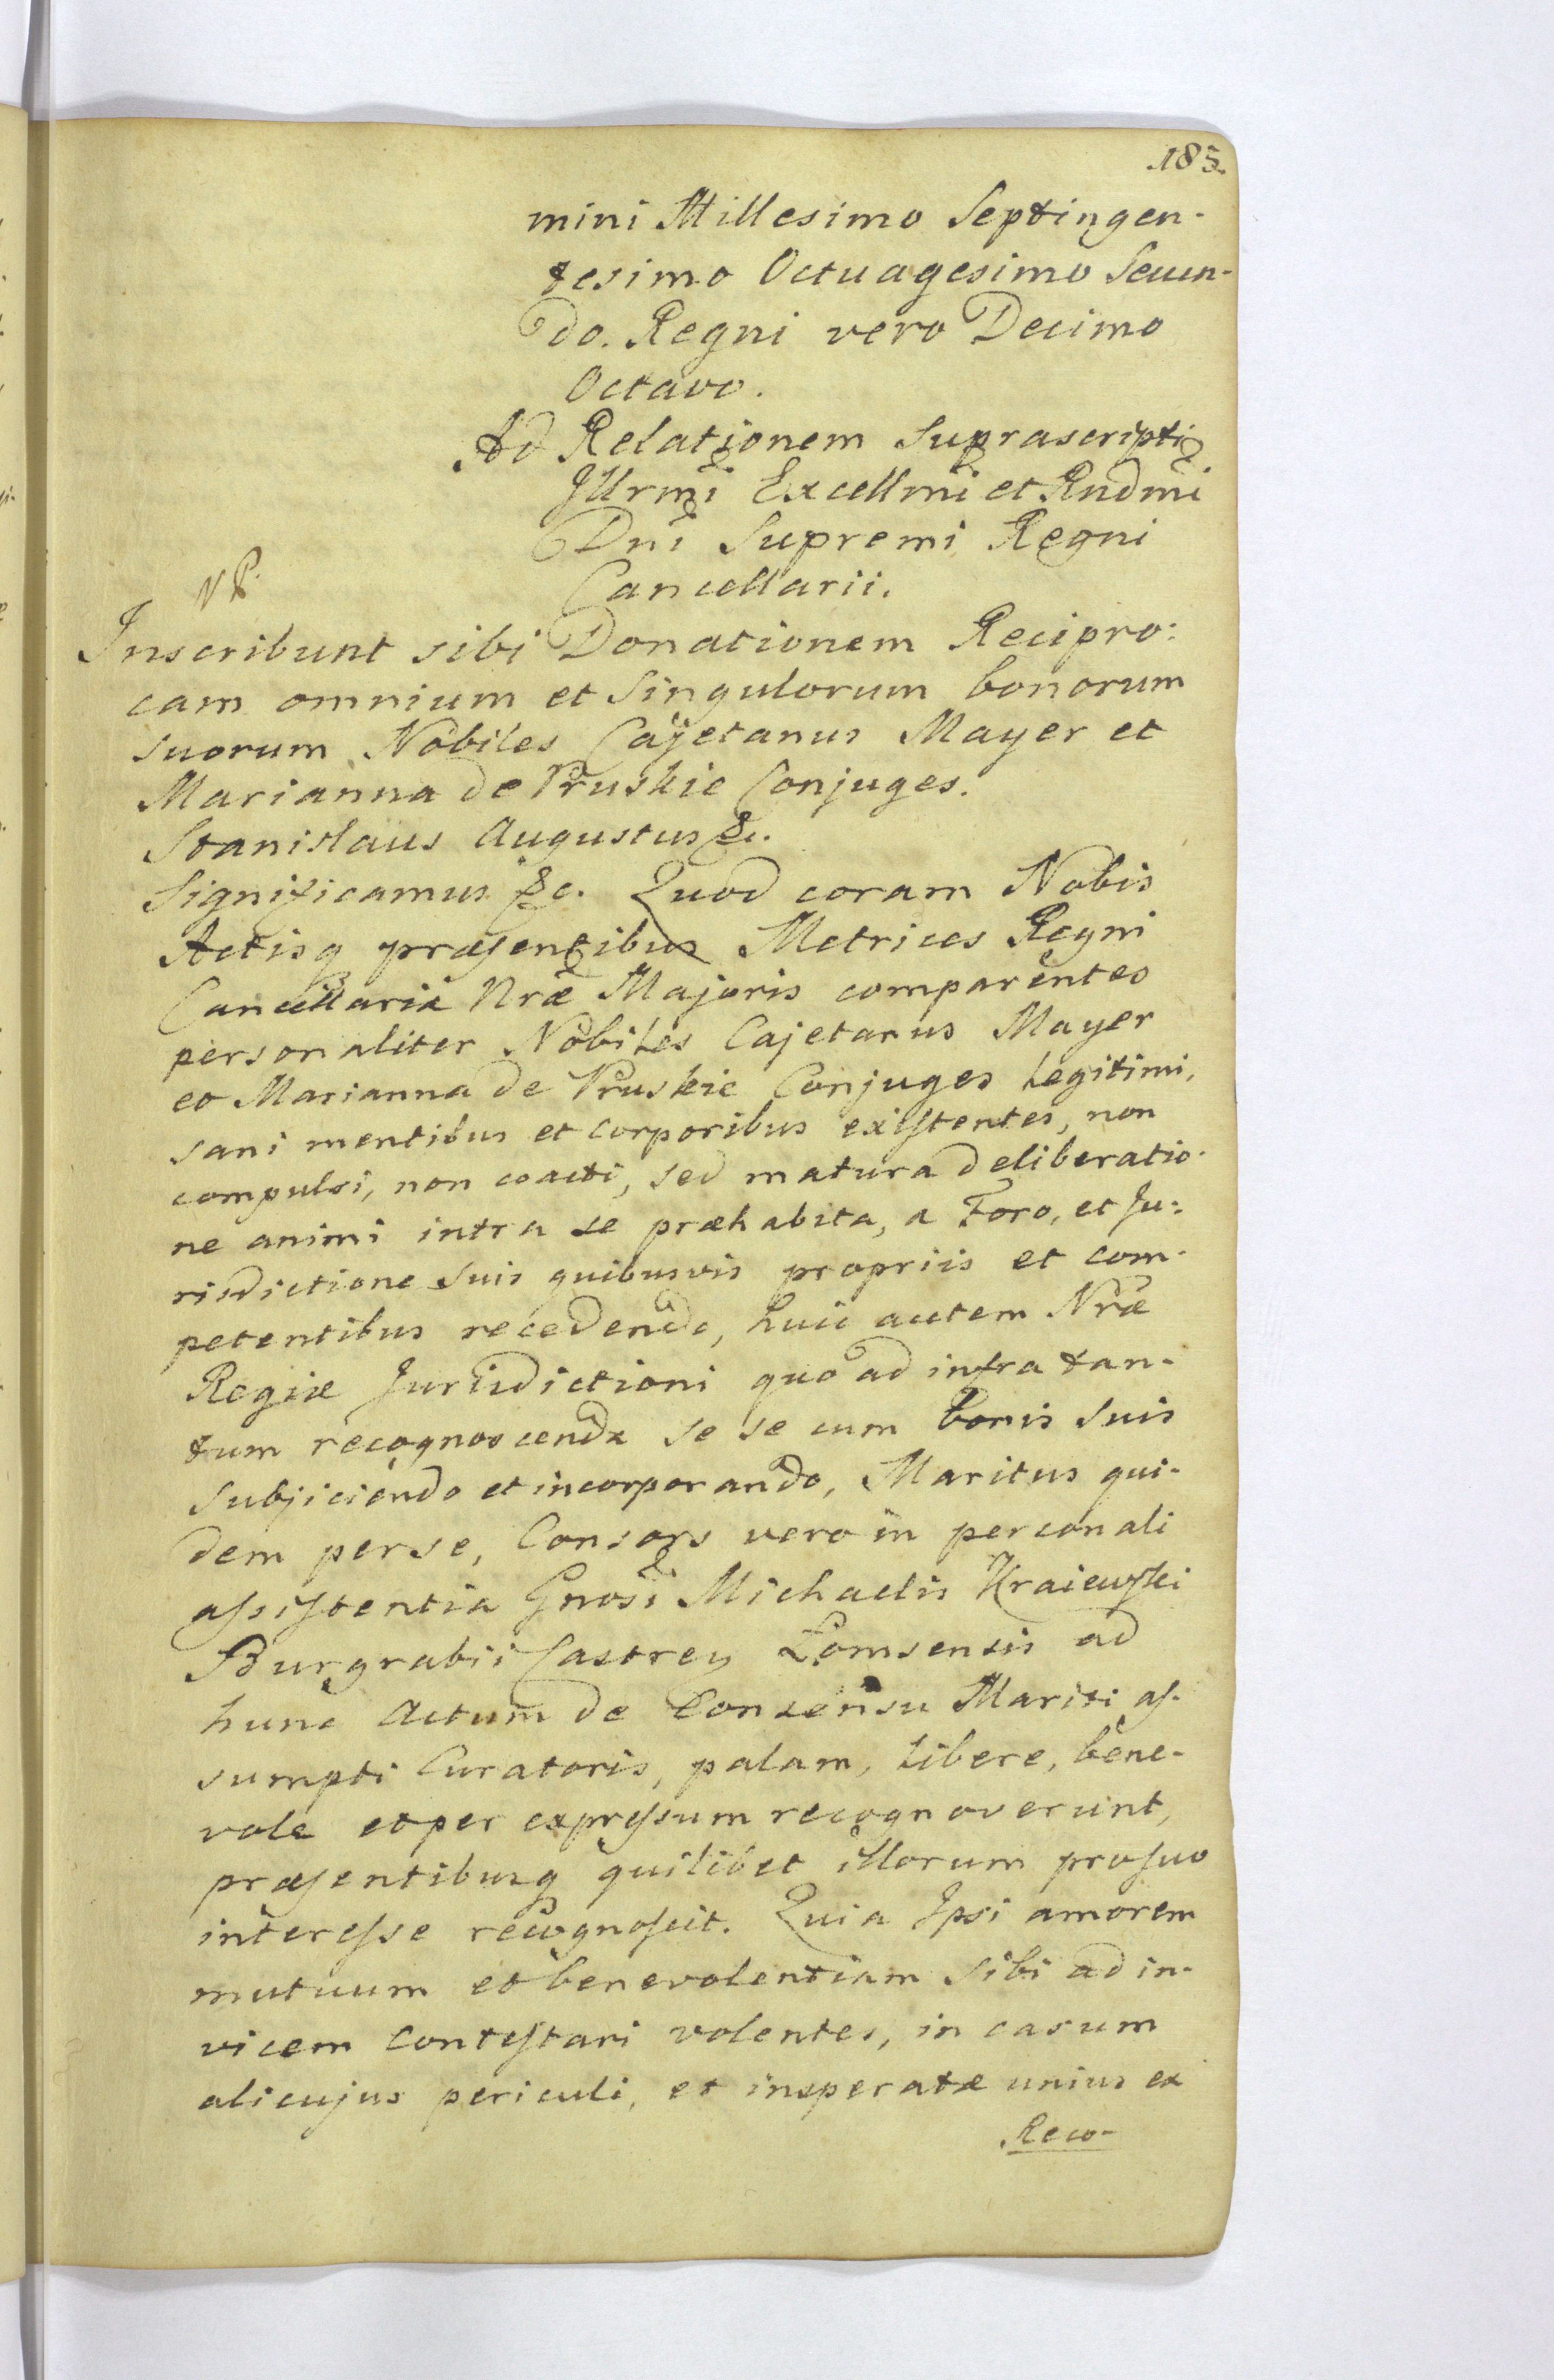 185.
mini Millesimo Septingen-
tesimo Octuagesimo Secun-
do. Regni vero Decimo
Octavo.
Ad Relationem Suprascripti
Illrmi Excellmi et Rndmi
Dni Supremi Regni
Cancellarii.
Inscribunt sibi Donationem Recipro:
cam omnium et Singulorum bonorum
suorum Nobiles Cajetanus Mayer et
Marianna de Pruskie Conjuges.
Stanislaus Augustus &c.
Significamus &c. Quod coram Nobis
Actisq præsentibus Metrices Regni
Cancellariæ Nræ Majoris comparentes
personaliter Nobiles Cajetanus Mayer
et Marianna de Pruskie Conjuges Legitimi,
sani mentibus et corporibus existentes, non
compulsi, non coacti, sed matura deliberatio-
ne animi intra se præhabita, a Foro, et Ju:
risdictione suis quibusvis propriis et com-
petentibus recedendo, huic autem Nræ
Regiæ Jurisdictioni quo ad infra tan-
tum recognoscenda se se cum bonis suis
subjiciendo et incorporando, Maritus qui-
dem per se, Consors vero in personali
assistentia Gnosi Michaelis Kraiewski
Burgrabii Castren Łomsensis ad
hunc Actum de Consensu Mariti as-
sumpti Curatoris, palam, libere, bene-
vole et per expressum recognoverunt,
præsentibusq quilibet illorum pro suo
interesse recognoscit. Quia Ipsi amorem
mutuum et benevolentiam sibi ad in-
vicem contestari volentes, in casum
alicujus periculi, et insperatæ unius ex
Reco-